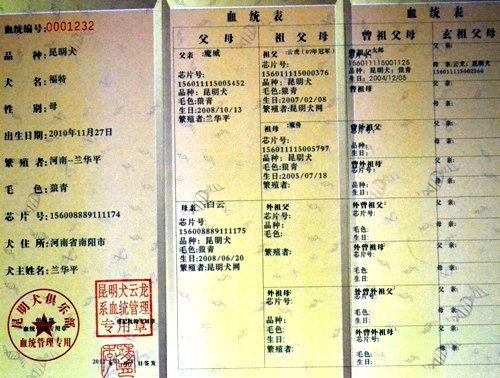 血统编号:0001232
品 种:昆明犬
犬 名:福特
性 别:母
出生日期:2010年11月27日
繁 殖 者:河南-兰华平
毛 色:狼青
芯 片 号:156008889111174
犬 住 所:河南省南阳市
犬主姓名:兰华平
昆明犬俱乐部
血统管理专用
昆明犬云龙
系血统管理
专用章
血统表
父母
父亲:魔威
芯片号:
156011115005452
品种: 昆明犬
毛色:狼青
生日:2008/10/13
繁殖者:兰华平
母亲:白云
芯片号:
156008889111175
品种: 昆明犬
毛色:狼青
生日:2008/06/20
繁殖者:昆明犬网
祖父母
祖父:云虎(07年冠军)
芯片号:
156011115000376
品种: 昆明犬
毛色:狼青
生日:2007/02/08
繁殖者:昆明犬网
祖母:魔兽
芯片号:
156011115005797
品种:昆明犬
毛色:狼青
生日:2005/07/18
繁殖者:
外祖父:
芯片号:
繁殖者:
外祖母:
芯片号:
血统表
曾祖父母
156011115001125
品种:昆明犬; 狼青
生日:2004/12/05
曾祖母
曾外祖父:
品种:
生日:
曾外祖母:
芯片号:
品种:
生日:
外曾祖父:
芯片号:
生日:
外曾祖母:
芯片号:
生日:
外曾外祖父:
芯片号:
生日:
外曾外祖母:
芯片号:
生日:
玄祖父母
父亲:
母亲:
父亲:
母亲:
父亲:
母亲:
父亲:
母亲:
父亲:
母亲:
父亲:
母亲: